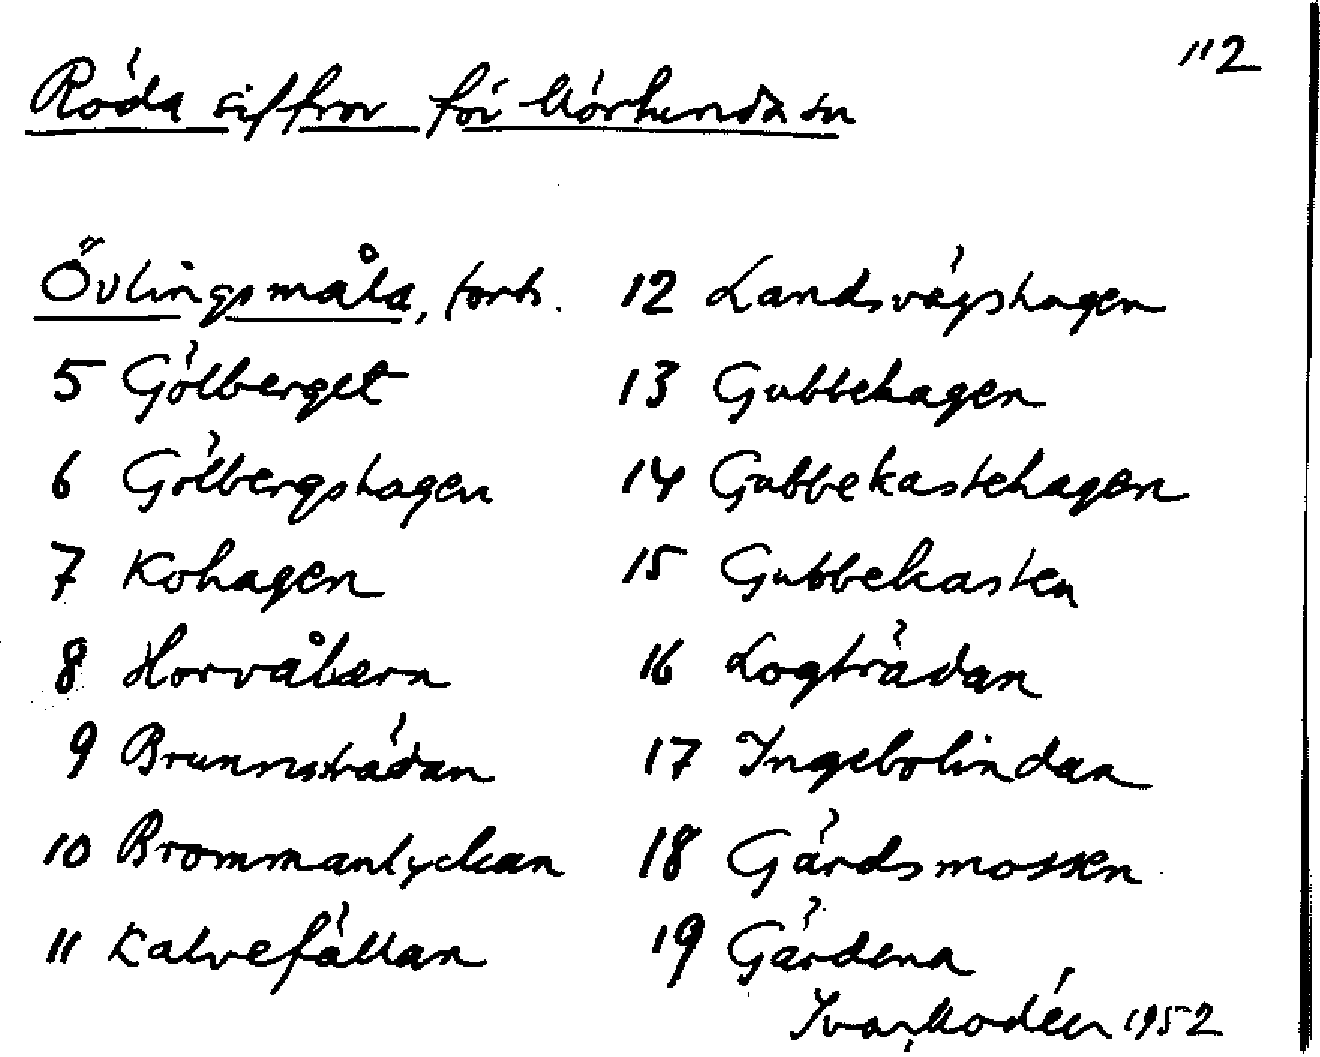 112
Röda siffror för Mörlunda sn
Övlingsmåla, forts.
5 Gölberget
6 Gölbergshagen
7 Kohagen
8
9 Brunnsträdan
10 Brommanlyckan
11 Kalvefällan
12 Landsvägshagen
13 Gubbehagen
14 Gubbekastehagen
15 Gubbekasten
16 Logträdan
17 Ingebolindan
18 Gärdsmossen
19 Gärdena
Ivar Modéer 1952